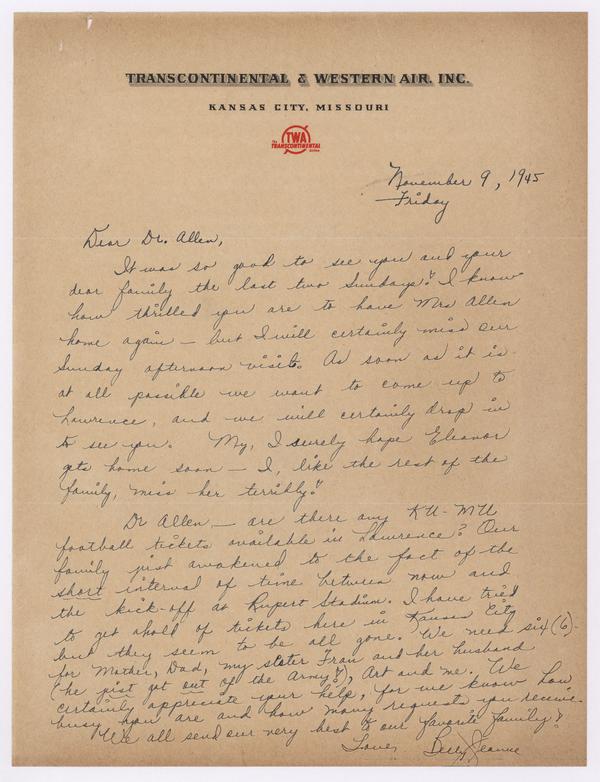 TRANSCONTINENTAL & WESTERN AIR, INC.
KANSAS CITY, MISSOURI
TWA
The TRANSCONTINENTAL Airline
November 9, 1945
Friday
Dear Dr. Allen,
It was so good to see you and your
dear family the last two Sundays! I know
how thrilled you are to have Mrs Allen
home again — but I will certainly miss our
Sunday afternoon visits. As soon as it is
at all possible we want to come up to
Lawrence, and we will certainly drop in
to see you. My, I surely hope Eleanor
gets home soon — I, like the rest of the
family, miss her terribly!
Dr Allen — are there any KU-MU
football tickets available in Lawrence? Our
family just awakened to the fact of the
short interval of time between now and
the kick-off at Rupert Stadium. I have tried
to get ahold of tickets here in Kansas City
but they seem to be all gone. We need six (6) -
for Mother, Dad, my sister Fran and her husband
(he just got out of the Army!), Art and me. We
certainly appreciate your help, for we know how
busy you are and how many requests you receive.
We all send our very best to our favorite family!
Love, Betty Jeanne